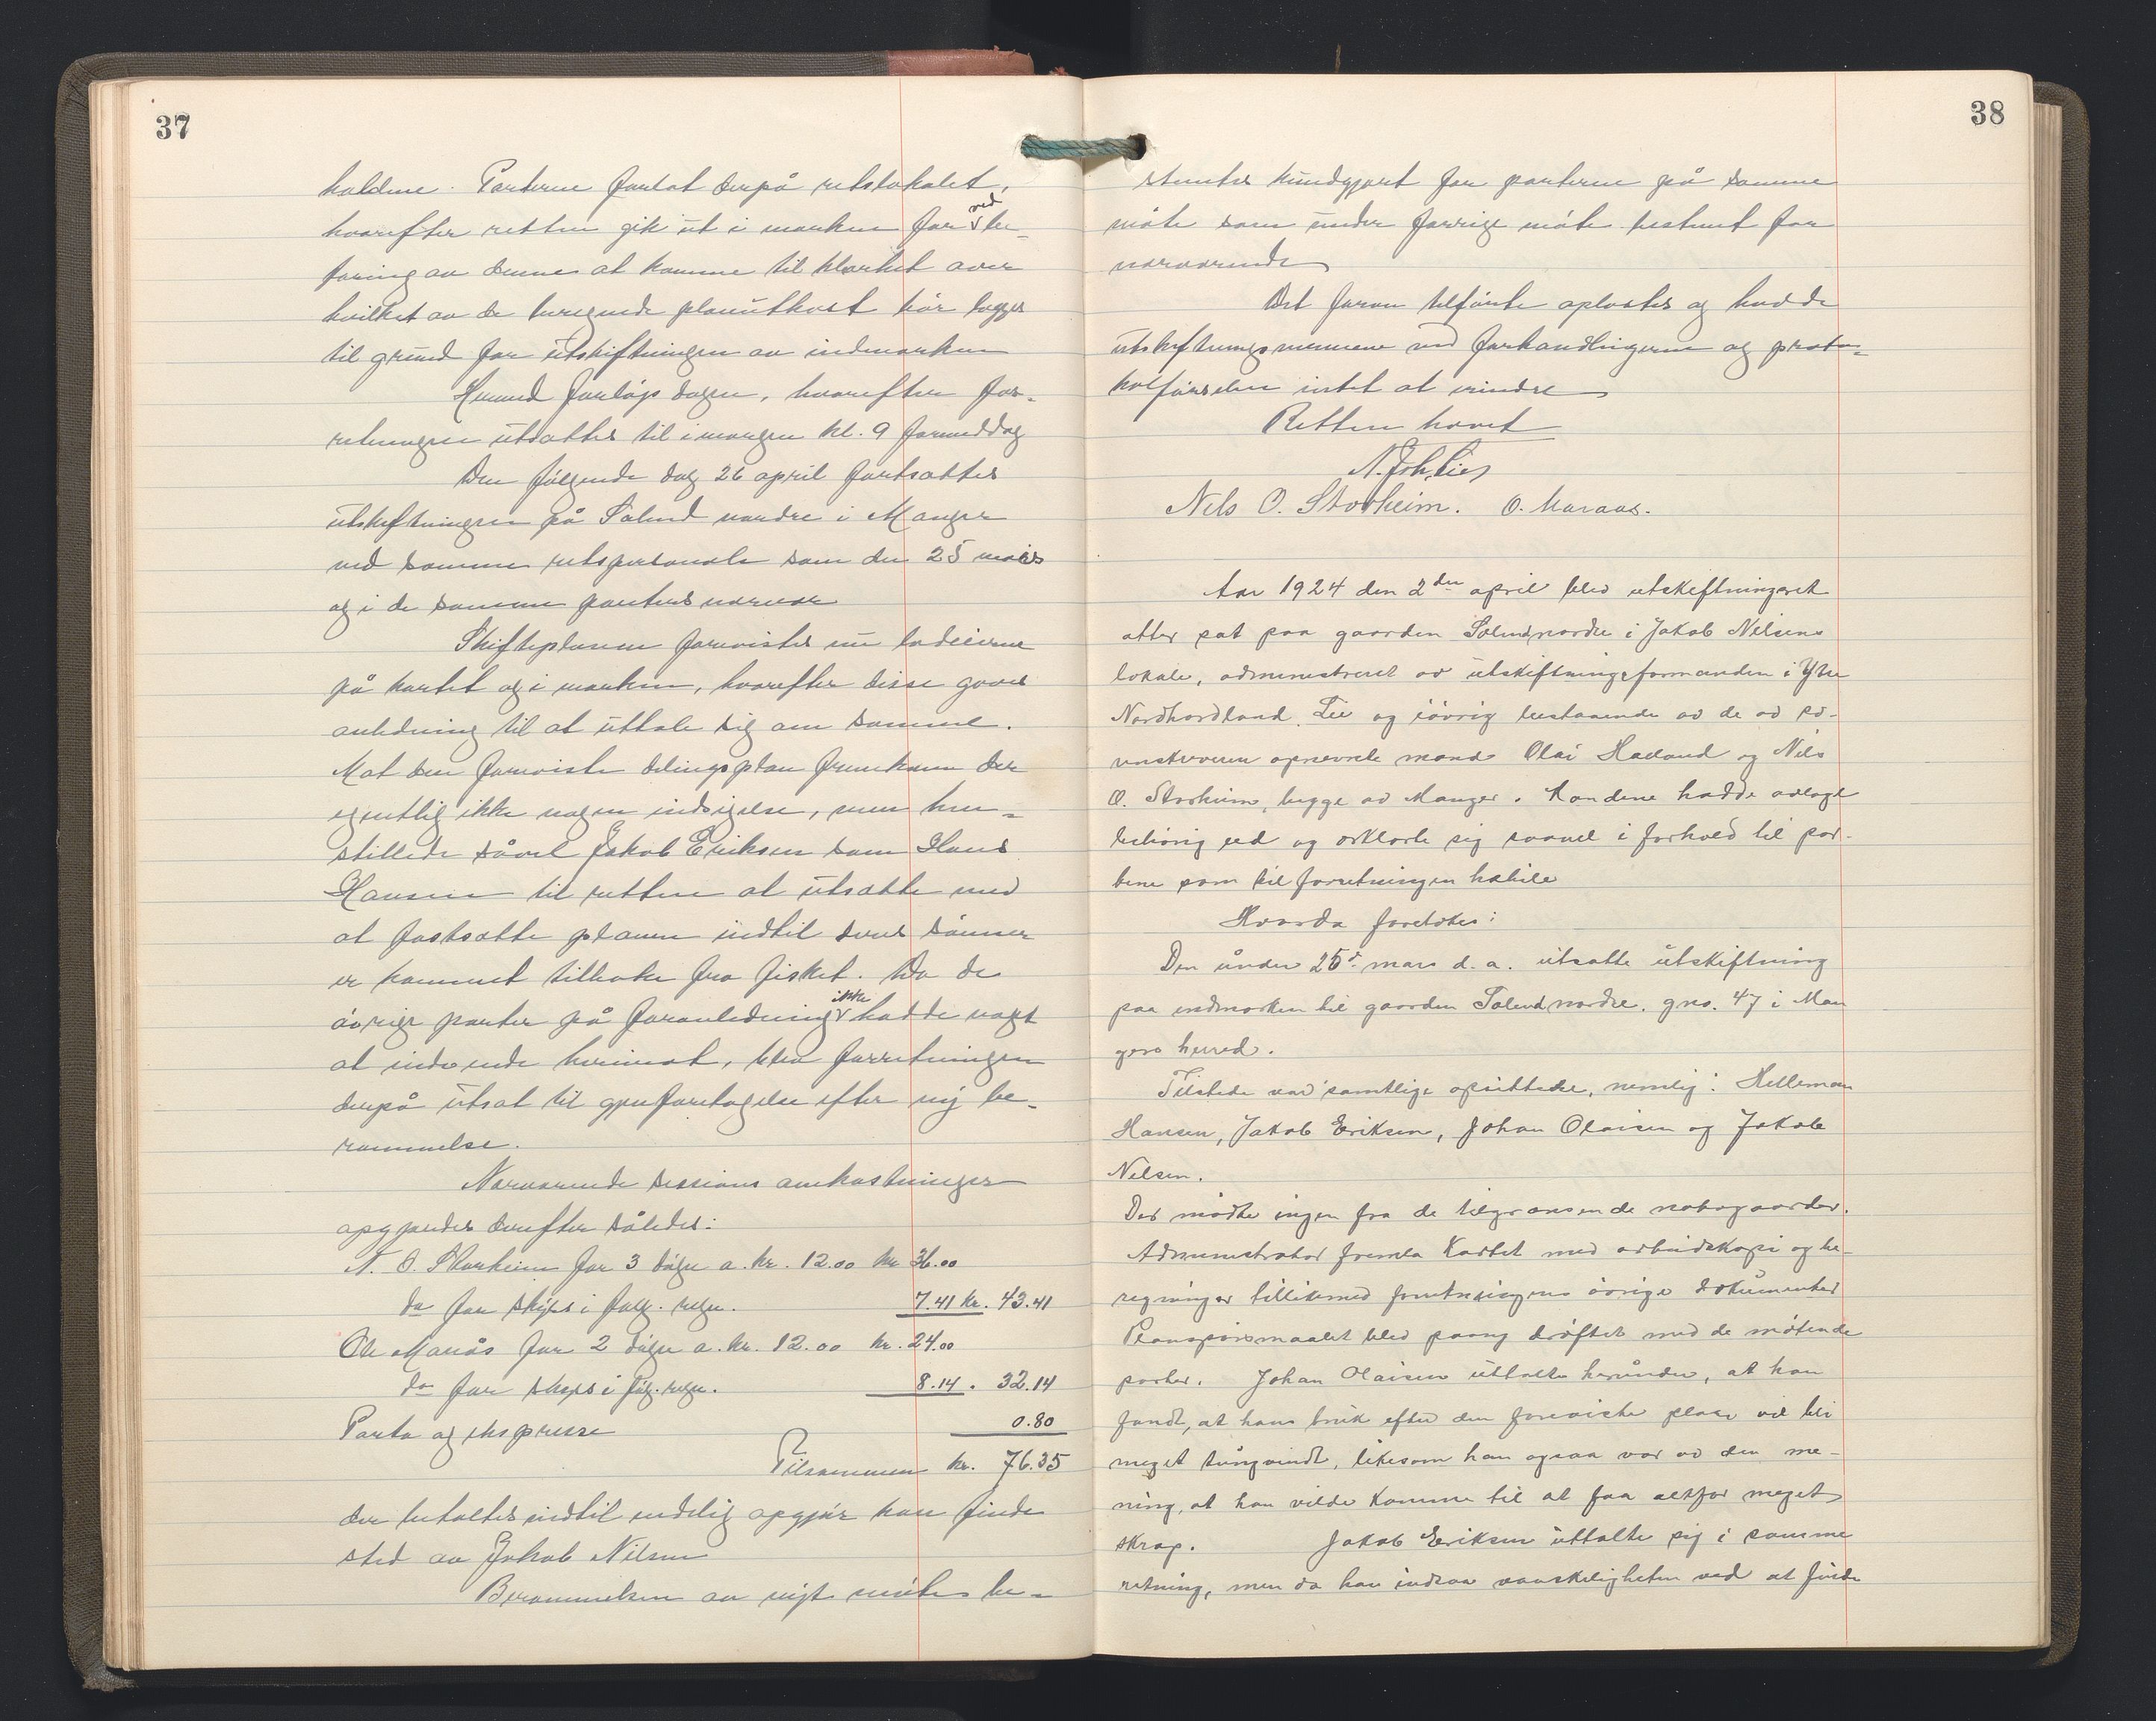 37
holdene. Parterne forlot derpå retslokalet,
hvorefter retten gik ut i marken for ved be-
faring av denne at komme til klarhet over
hvilket av de beregnede planutkast bör lægges
til grund for utskiftningen av indmarken
Hermed forløp dagen, hvorefter for-
retningen utsattes til imorgen kl. 9 formiddag
Den følgende dag 26 april fortsattes
utskiftningen på Solend nordre i Manger
ved samme retspersonale som den 25 mars
og i de samme parters nærvær
Skifteplanen forevistes nu lodeierne
på kartet og i marken, hvorefter disse gaves
anledning til at uttale sig om samme.
Mot den foreviste delingsplan fremkom der
egentlig ikke nogen indsigelse, men hen-
stillede såvel Jakob Eriksen som Hans
Hansen til retten at utsætte med
at fastsætte planen indtil deres sønner
er kommet tilbake fra fisket. Da de
övrige parter på foranledning ikke hadde noget
at indvende herimot, blev forretningen
derpå utsat til gjenforetagelse efter ny be-
rammelse.
Nærværende sessions omkostninger
opgjordes derefter således:
N. O. Storheim for 3 døgn a. kr. 12.00 kr 36.00
do for skyss i følg. regn. 7.41 kr. 43.41
Ole Marås for 2 døgn a. kr. 12.00 kr. 24.00
do for skyss i følg. regn. 8.14 . 32.14
Porto og ekspresse 0.80
Tilsammen kr. 76.35
der betaltes indtil endelig opgjør kan finde
sted av Jakob Nilsen
Berammelsen av nyt möte be-
38
stemtes kundgjort for parterne på samme
måte som under forrige möte bestemt for
nærværende
Det foran tilførte oplæstes og hadde
utskiftningsmennene ved forhandlingerne og proto-
kolførselen intet at erindre
Retten hævet
N. Joh. Lie
Nils O. Storheim. O. Maraas.
Aar 1924 den 2den april blev utskiftningsret
atter sat paa gaarden Solend nordre i Jakob Nilsens
lokale, administreret av utskiftningsformanden i Ytre
Nordhordland Lie og iøvrig bestaaende av de av so-
renskriveren opnevnte mænd Olai Hadland og Nils
O. Storheim, begge av Manger. Mændene hadde avlagt
behörig ed og erklærte sig saavel i forhold til par-
tene som til forretningen habile
Hvorda foretokes:
Den under 25d. mars d. a. utsatte utskiftning
paa indmarken til gaarden Solend nordre. gno. 47 i Man
gers herred.
Tilstede var samtlige opsittere, nemlig: Helleman
Hansen, Jakob Eriksen, Johan Olaisen og Jakob
Nilsen.
Der mødte ingen fra de tilgrænsende nabogaarder.
Administrator fremla kartet med arbeidskopi og be-
regninger tillikemed forretningens övrige dokumenter
Planspörsmaalet blev paany dröftet med de mötende
parter. Johan Olaisen uttalte herunder, at han
fandt, at hans bruk efter den foreviste plan vil bli
meget tungvindt, likesom han ogsaa var av den me-
ning, at han vilde komme til at faa altfor meget
skrap. Jakob Eriksen uttalte sig i samme
retning, men da han indsaa vanskeligheten ved at finde